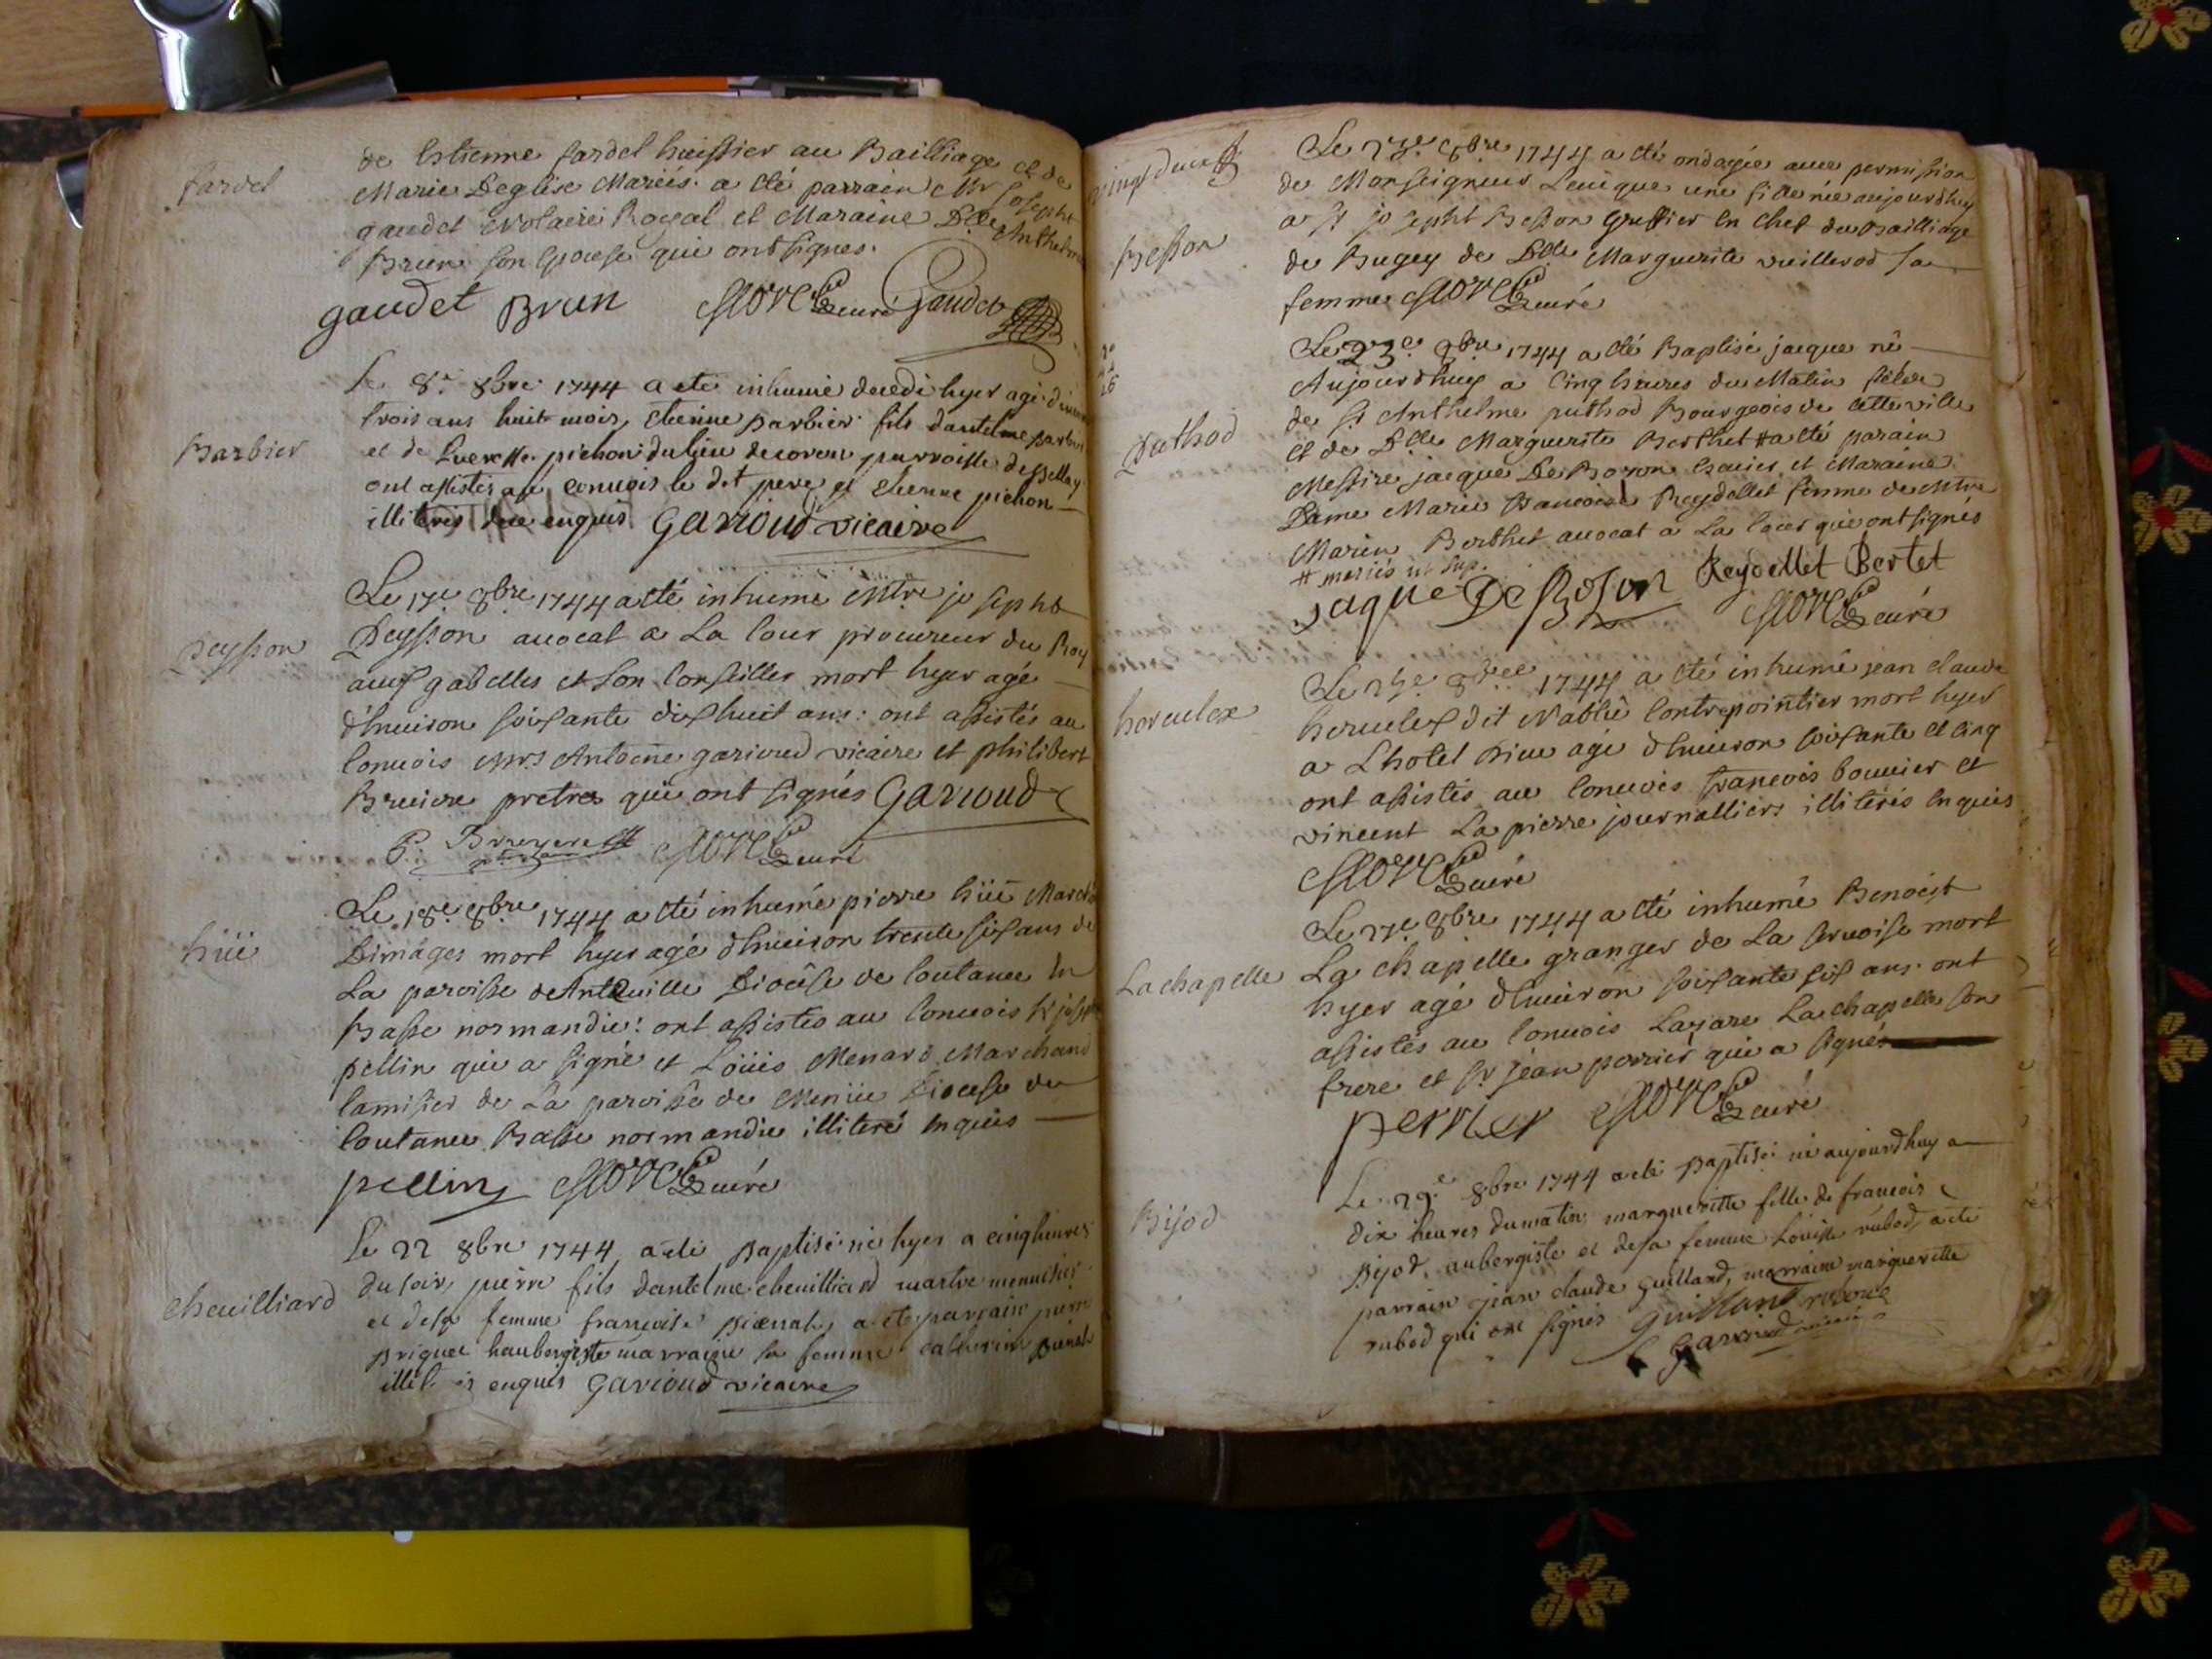 fardel
de Estienne fardel huissier au Bailliage et de
Marie Deglise Mariés. a eté parrain Mr Josepht
gaudet Notaire Royal et Maraine Dlle Anthelme
Brun son Epouse qui ont signés.
gaudet Brun curé Gaudet
Barbier
le 8e 8bre 1744 a ete inhumé decedé hyer agé
trois ans huit mois, etienne barbier fils dantelme barbier
et de pichon du lieu de coron parroisse de Belley
ont assistes au convois le dit pere et etienne pichon
illiteris de ce enquis Garioud vicaire
Peysson
Le 17e 8bre 1744 a eté inhumé Mtre josepht
Peysson avocat a La Cour procureur du Roy
aux gabelles et son Conseiller mort hyer agé
d'huiron soixante dix huit ans: ont assistés au
Convois Mrs Antoine garioud vicaire et philibert
Bruiere pretres qui ont signés Garioud
P. Bruyere ptre curé
hüe
Le 18e 8bre 1744 a eté inhumé pierre hüe March
Dimages mort hyer agé d'huiron trente six ans de
La paroisse de Diocese de Coutance En
Basse normandie: ont assistés au Convois Sr
pellin qui a signé et Loüis Menard Marchand
de La paroisse de Diocese de
Coutance Basse normandie illiteré Enquis
pellin curé
cheuilliard
Le 22 8bre 1744 a eté Baptisé né hyer a cinq heures
du soir, pierre fils dantelme cheuilliard maitre menuisier
et de sa femme francoise a ete parrain pierre
haubergiste marraine sa femme catherine
enquis Garioud vicaire
Besson
Le 23e 8bre 1744 a eté ondayée avec permission
de Monseigneur Leveque une fille née aujourdhuy
a Sr josepht Besson Greffier En Chef du Bailliage
de Bugey de Dlle Marguerite vuillerod sa
femme curé
Puthod
Le 23e 8bre 1744 a eté Baptisé jacque né
Aujourdhuy a Cinq heures du Matin
de Sr Anthelme puthod Bourgeois de cette ville
et de Dlle Marguerite Berthet # a eté parain
Messire jacque De Boson Ecuier et Maraine
Dame Marie Reydellet femme de Mtre
Marin Berthet avocat a La Cour qui ont signés
# mariés ut sup.
jaque De Boson Reydellet Bertet
curé
hercules
Le 25e 8bre 1744 a eté inhumé jean claude
hercules dit Contrepointier mort hyer
a Lhotel Dieu agé d'huiron soixante et cinq
ont assistés au Convois francois bouvier et
vincent La pierre journalliers illiterés Enquis
curé
La chapelle
Le 27e 8bre 1744 a eté inhumé Benoist
La chapelle granger de La mort
hyer agé d'huiron soixante six ans. ont
assistés au Convois Lazare La chapelle son
frere et Sr jean perrier qui a signé
perrier curé
Bijod
Le 29e 8bre 1744 a eté Baptisé né aujourdhuy a
dix heures du matin, margueritte fille de francois
Bijod, aubergiste et de sa femme Louise rubod, a eté
parrain jean claude Guilland, marraine margueritte
rubod qui ont signés Guilland rubod
Garioud vicaire